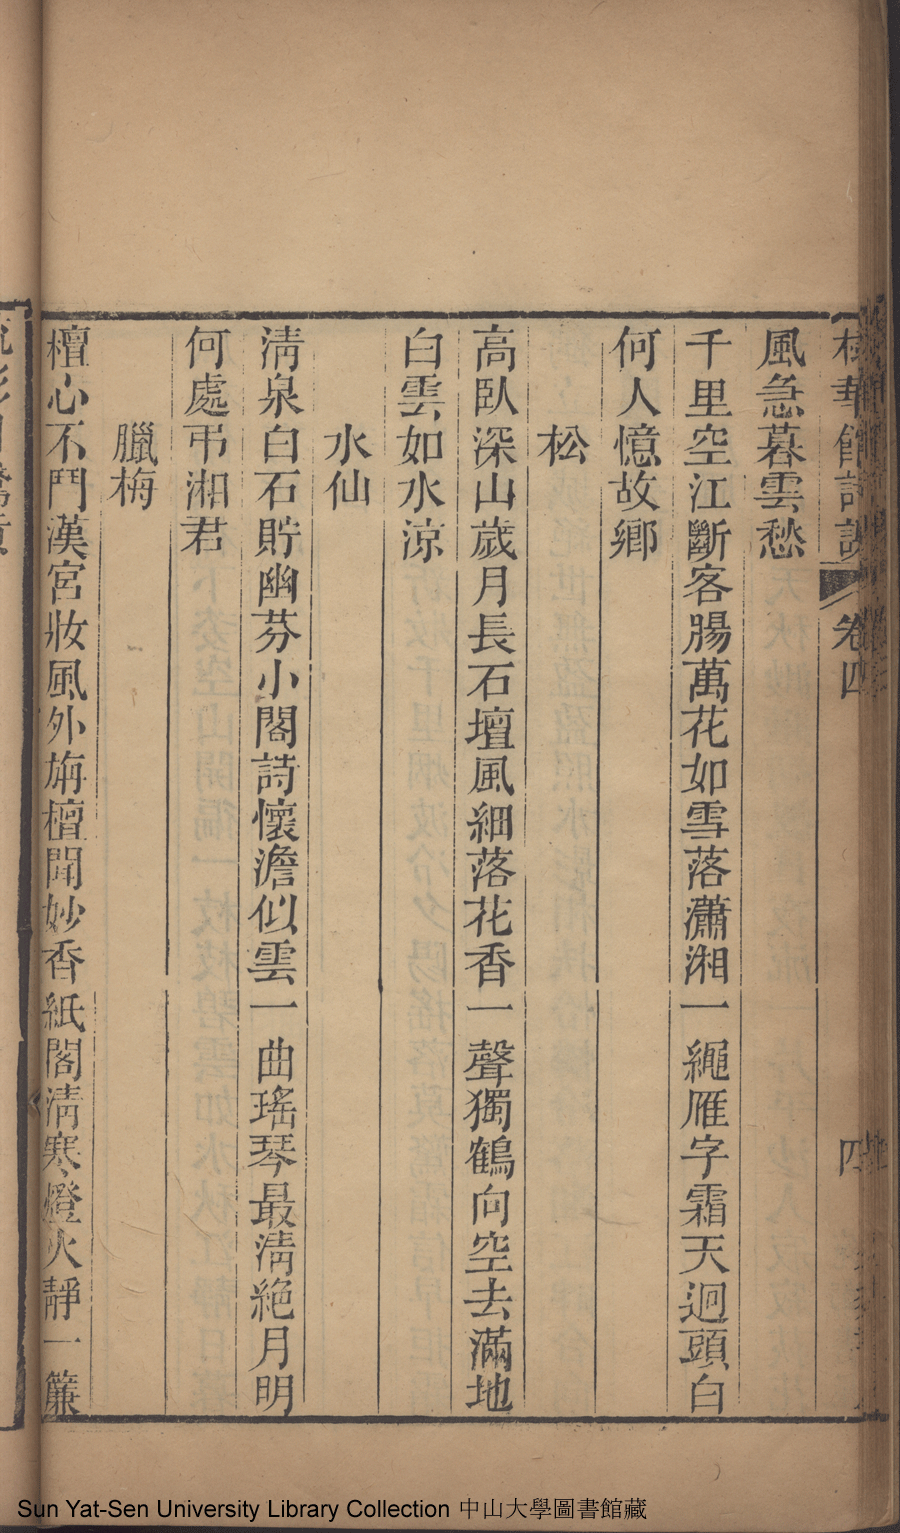 華館詩 卷四 四
風急暮雲愁
千里空江斷客腸萬花如雪落瀟湘一繩雁字霜天迥頭白
何人憶故鄉
松
高臥深山歲月長石壇風細落花香一聲獨鶴向空去滿地
白雲如水涼
水仙
清泉白石貯幽芬小閣詩懷澹似雲一曲瑤琴最清絶月明
何處弔湘君
臘梅
檀心不鬥漢宮妝風外旃檀聞妙香紙閣清寒燈火靜一簾
Sun Yat-Sen University Library Collection 中山大學圖書館藏